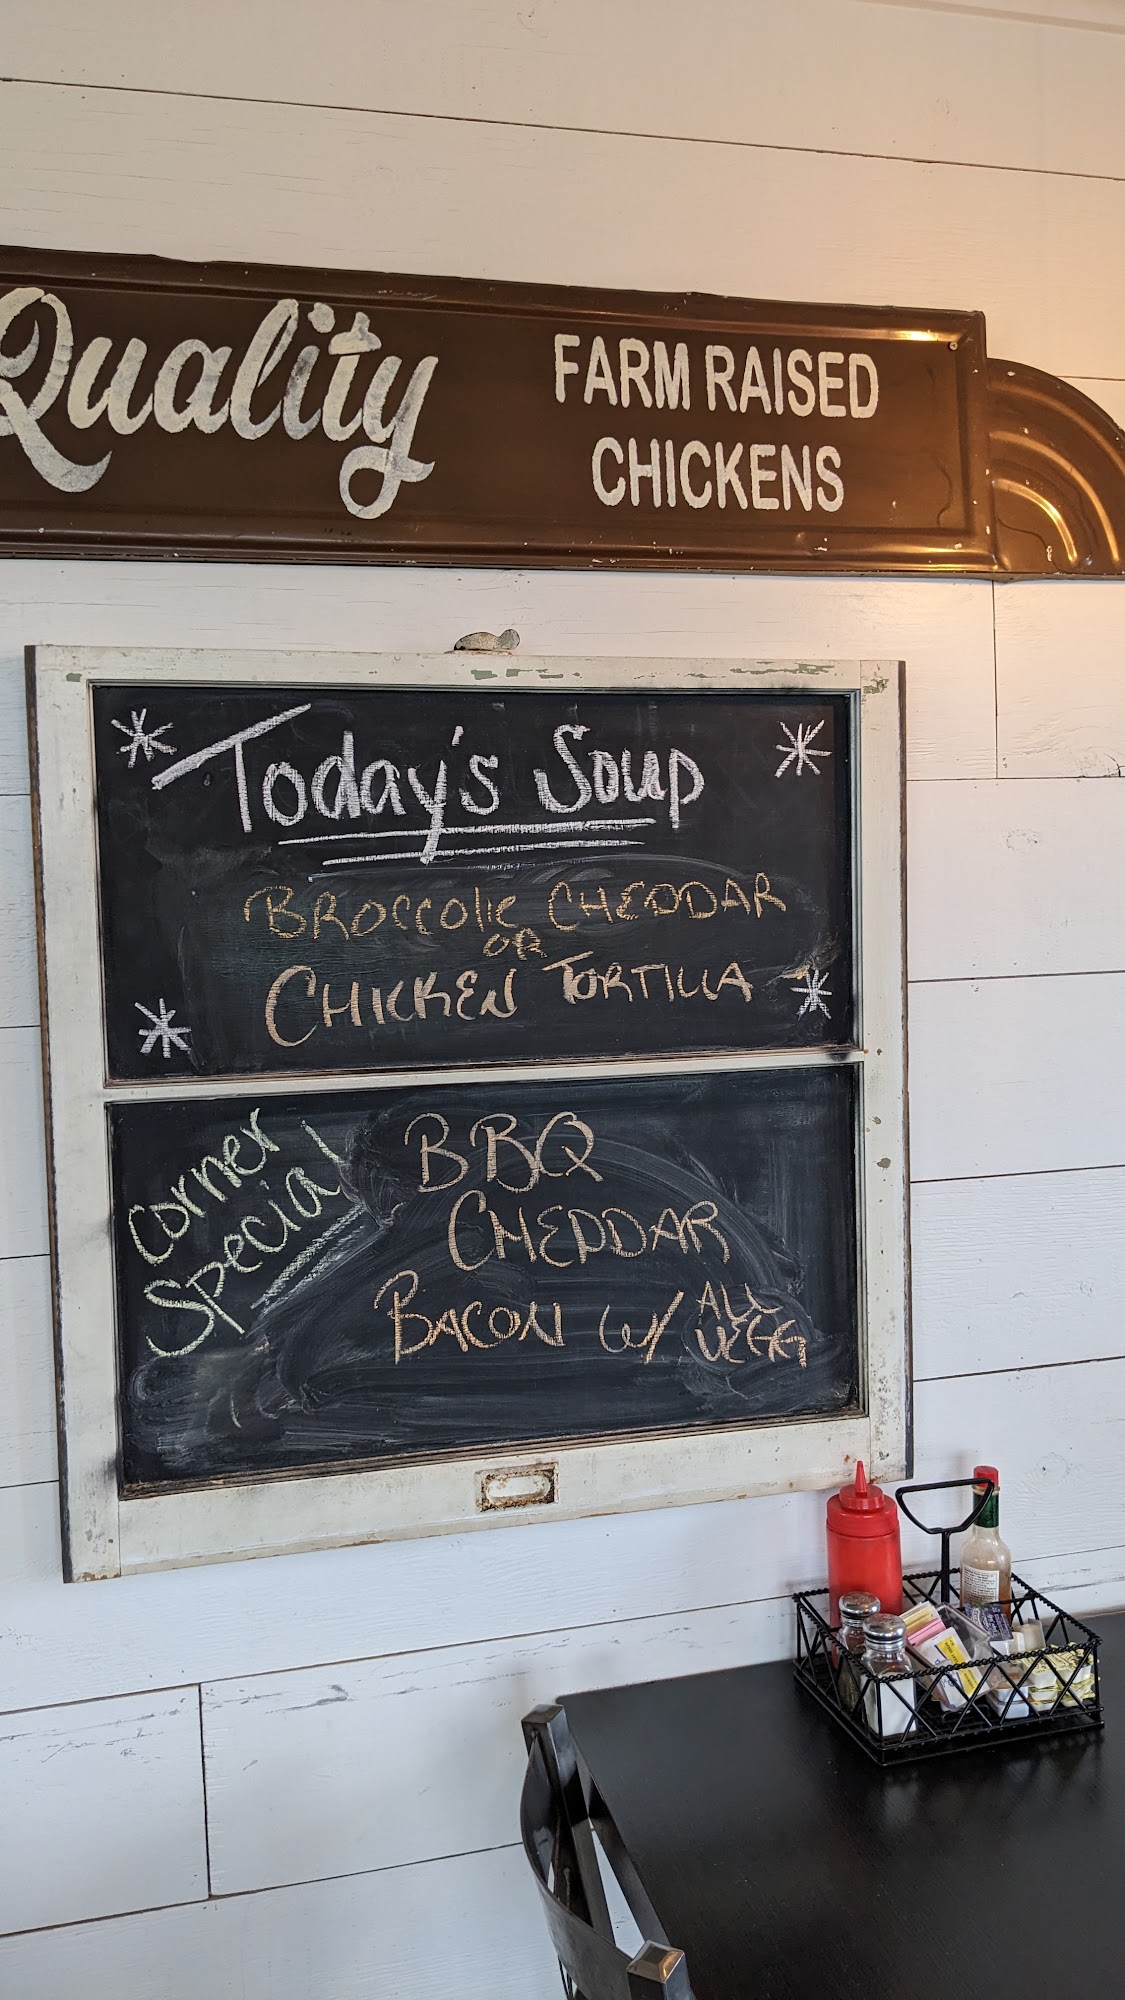 Quality
FARM RAISED
CHICKENS
Today's Soup
BROCCOLIE CHEDDAR
OR
CHICKEN TORTILLA
Corner
Special
BBQ
CHEDDAR
BACON W/ ALL
VEGG